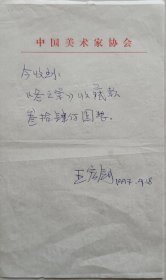 中国美术家协会
今收到:
《冬之祭》收藏款
拾肆仟圆整
王宏剑 1997.9.8